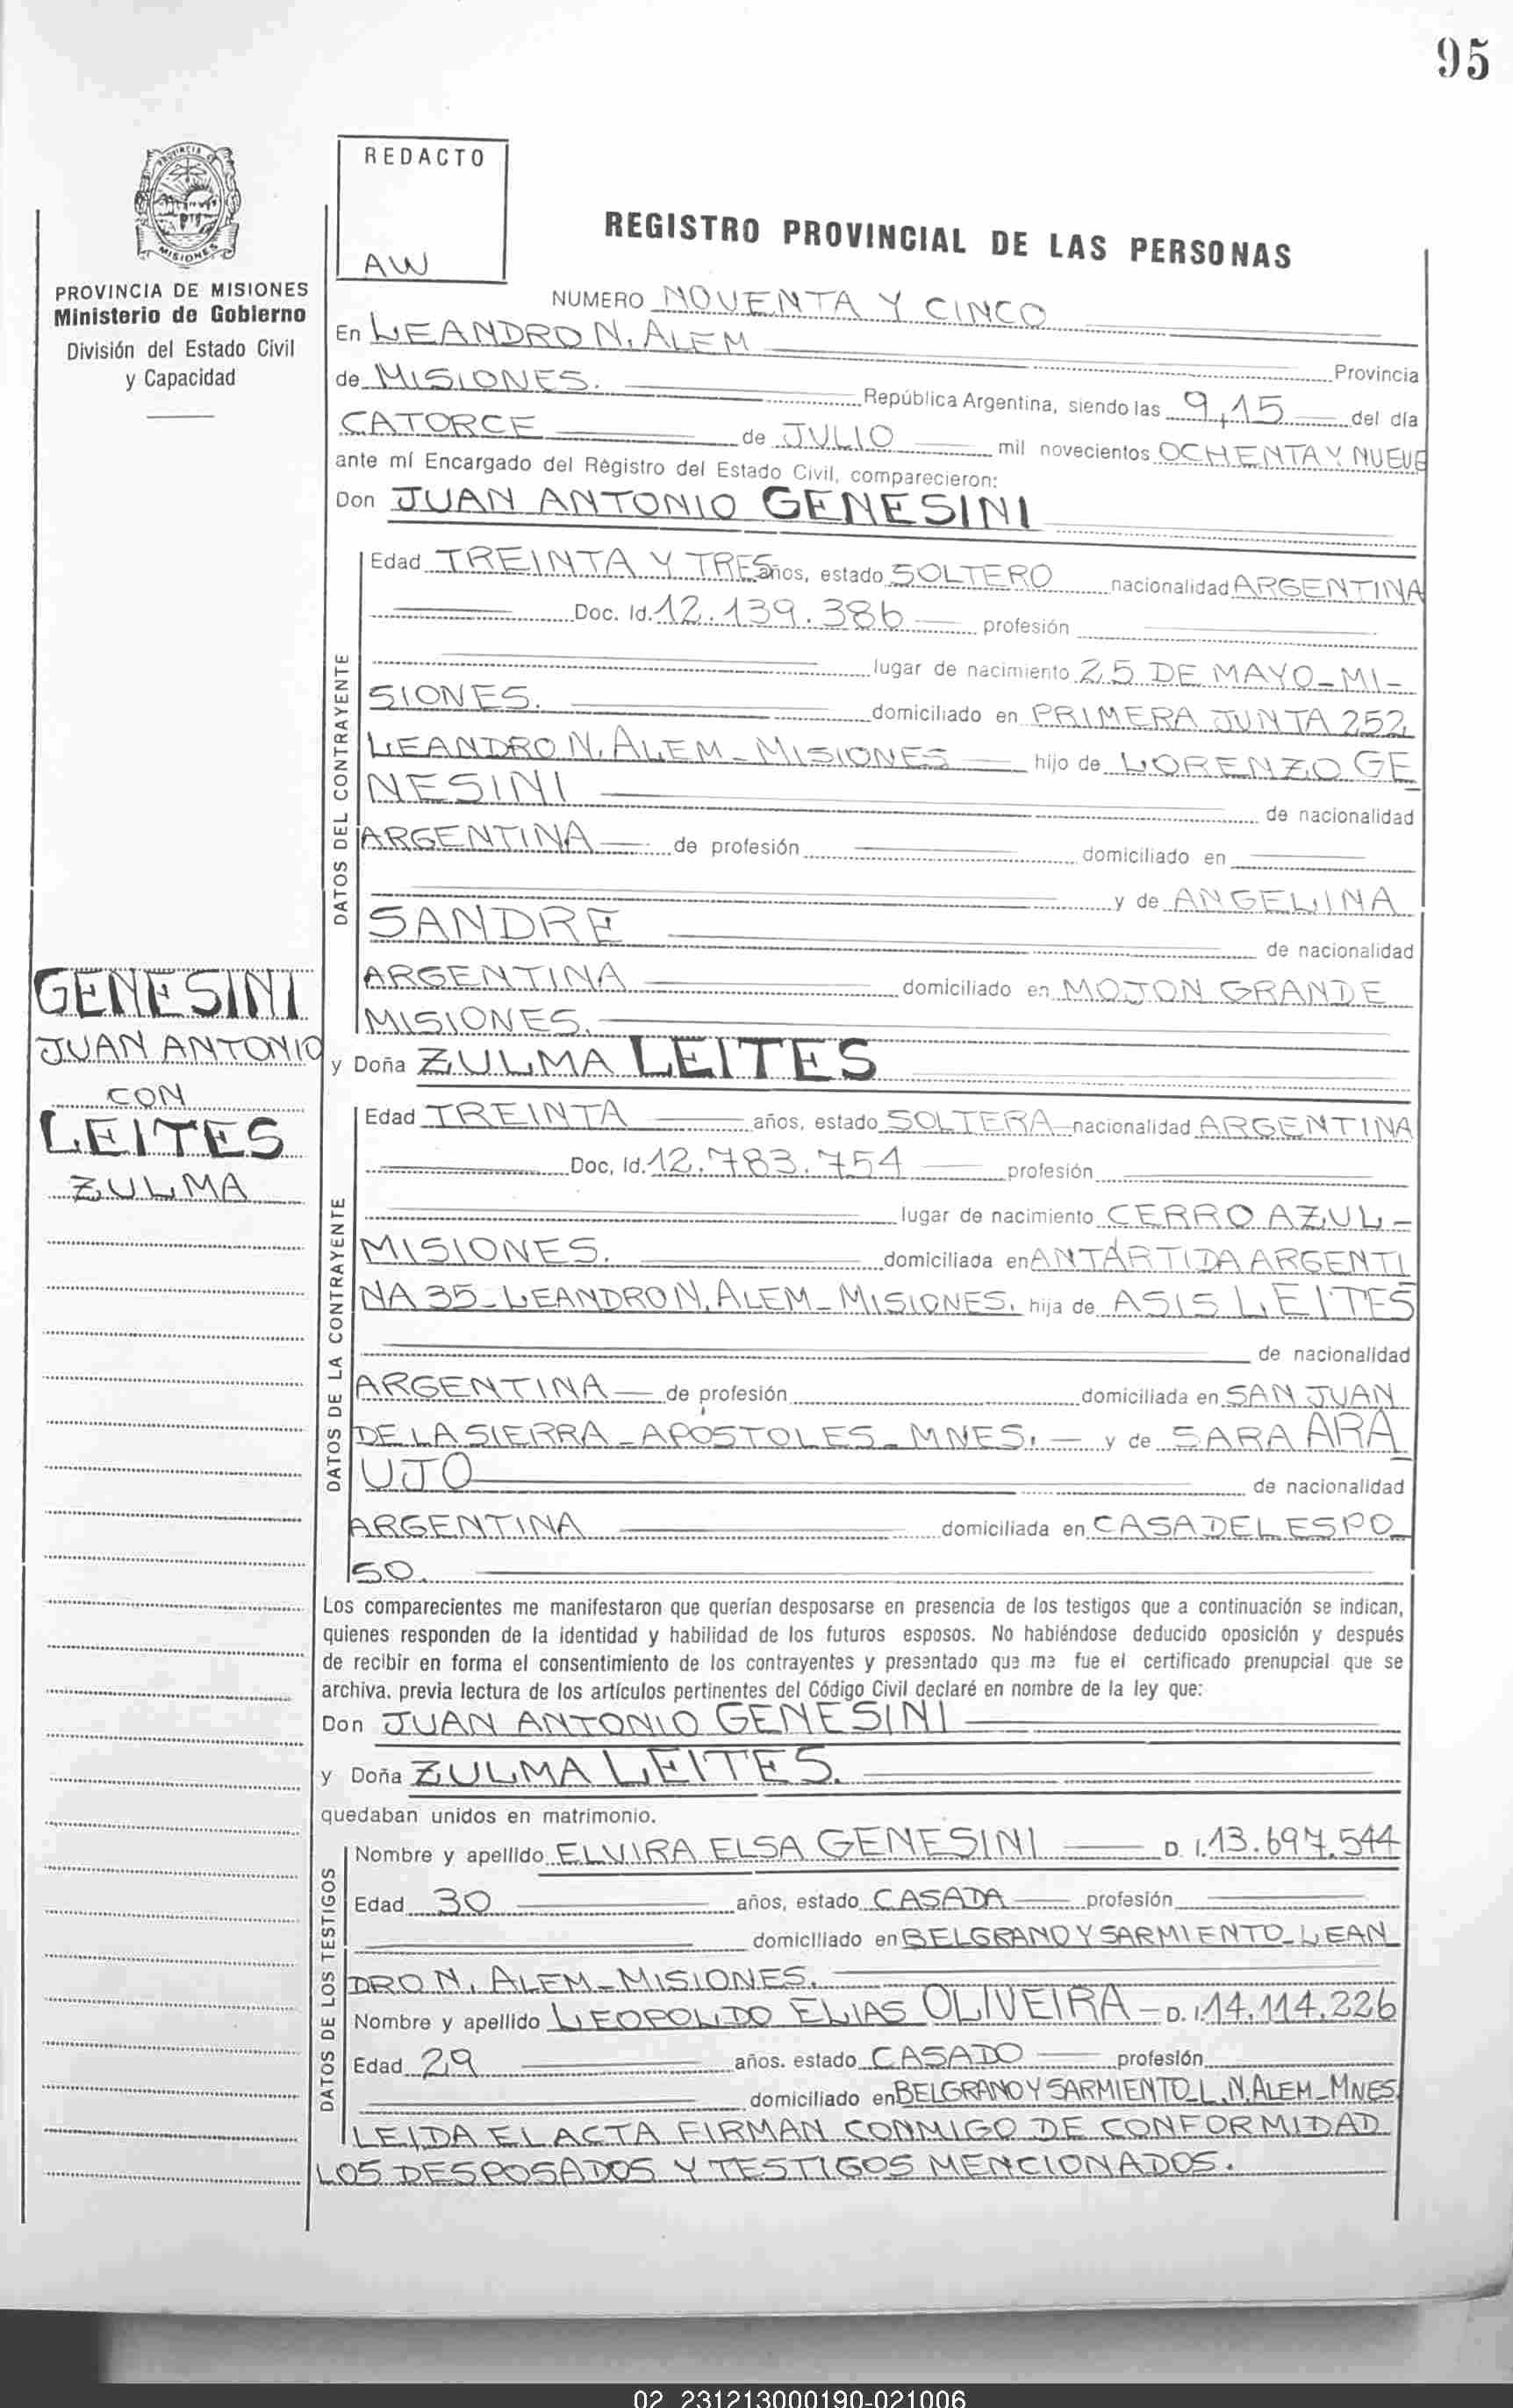 95
REDACTO
AW
PROVINCIA DE MISIONES
MISIONES
PROVINCIA DE MISIONES
Ministerio de Gobierno
División del Estado Civil
y Capacidad
REGISTRO PROVINCIAL DE LAS PERSONAS
NUMERO NOVENTA Y CINCO
En LEANDRO N. ALEM
Provincia
de MISIONES. República Argentina, siendo las 9,15 del día
CATORCE de JULIO mil novecientos OCHENTA Y NUEVE
ante mí Encargado del Registro del Estado Civil, comparecieron:
Don JUAN ANTONIO GENESINI
DATOS DEL CONTRAYENTE
Edad TREINTA Y TRES años, estado SOLTERO nacionalidad ARGENTINA
Doc. Id. 12.139.386 profesión
lugar de nacimiento 25 DE MAYO-MI-
SIONES. domiciliado en PRIMERA JUNTA 252
LEANDRO N. ALEM - MISIONES hijo de LORENZO GE
NESINI de nacionalidad
ARGENTINA de profesión domiciliado en
y de ANGELINA
SANDRE de nacionalidad
ARGENTINA domiciliado en MOJON GRANDE
MISIONES.
GENESINI
JUAN ANTONIO
CON
LEITES
ZULMA
y Doña ZULMA LEITES
DATOS DE LA CONTRAYENTE
Edad TREINTA años, estado SOLTERA nacionalidad ARGENTINA
Doc, Id. 12.783.754 profesión
lugar de nacimiento CERRO AZUL -
MISIONES. domiciliada en ANTÁRTIDA ARGENTI
NA 35 - LEANDRO N. ALEM - MISIONES. hija de ASIS LEITES
de nacionalidad
ARGENTINA de profesión domiciliada en SAN JUAN
DE LA SIERRA - APOSTOLES - MNES. - y de SARA ARA
UJO de nacionalidad
ARGENTINA domiciliada en CASA DEL ESPO
SO.
Los comparecientes me manifestaron que querían desposarse en presencia de los testigos que a continuación se indican,
quienes responden de la identidad y habilidad de los futuros esposos. No habiéndose deducido oposición y después
de recibir en forma el consentimiento de los contrayentes y presentado que me fue el certificado prenupcial que se
archiva. previa lectura de los artículos pertinentes del Código Civil declaré en nombre de la ley que:
Don JUAN ANTONIO GENESINI
y Doña ZULMA LEITES.
quedaban unidos en matrimonio.
DATOS DE LOS TESTIGOS
Nombre y apellido ELVIRA ELSA GENESINI D. I. 13.697.544
Edad 30 años, estado CASADA profesión
domiciliado en BELGRANO Y SARMIENTO - LEAN
DRO N. ALEM - MISIONES.
Nombre y apellido LEOPOLDO ELIAS OLIVEIRA - D. I. 14.114.226
Edad 29 años. estado CASADO profesión
domiciliado en BELGRANO Y SARMIENTO - L.N. ALEM - MNES
LEIDA EL ACTA FIRMAN CONMIGO DE CONFORMIDAD
LOS DESPOSADOS Y TESTIGOS MENCIONADOS.
02_231213000190-021006